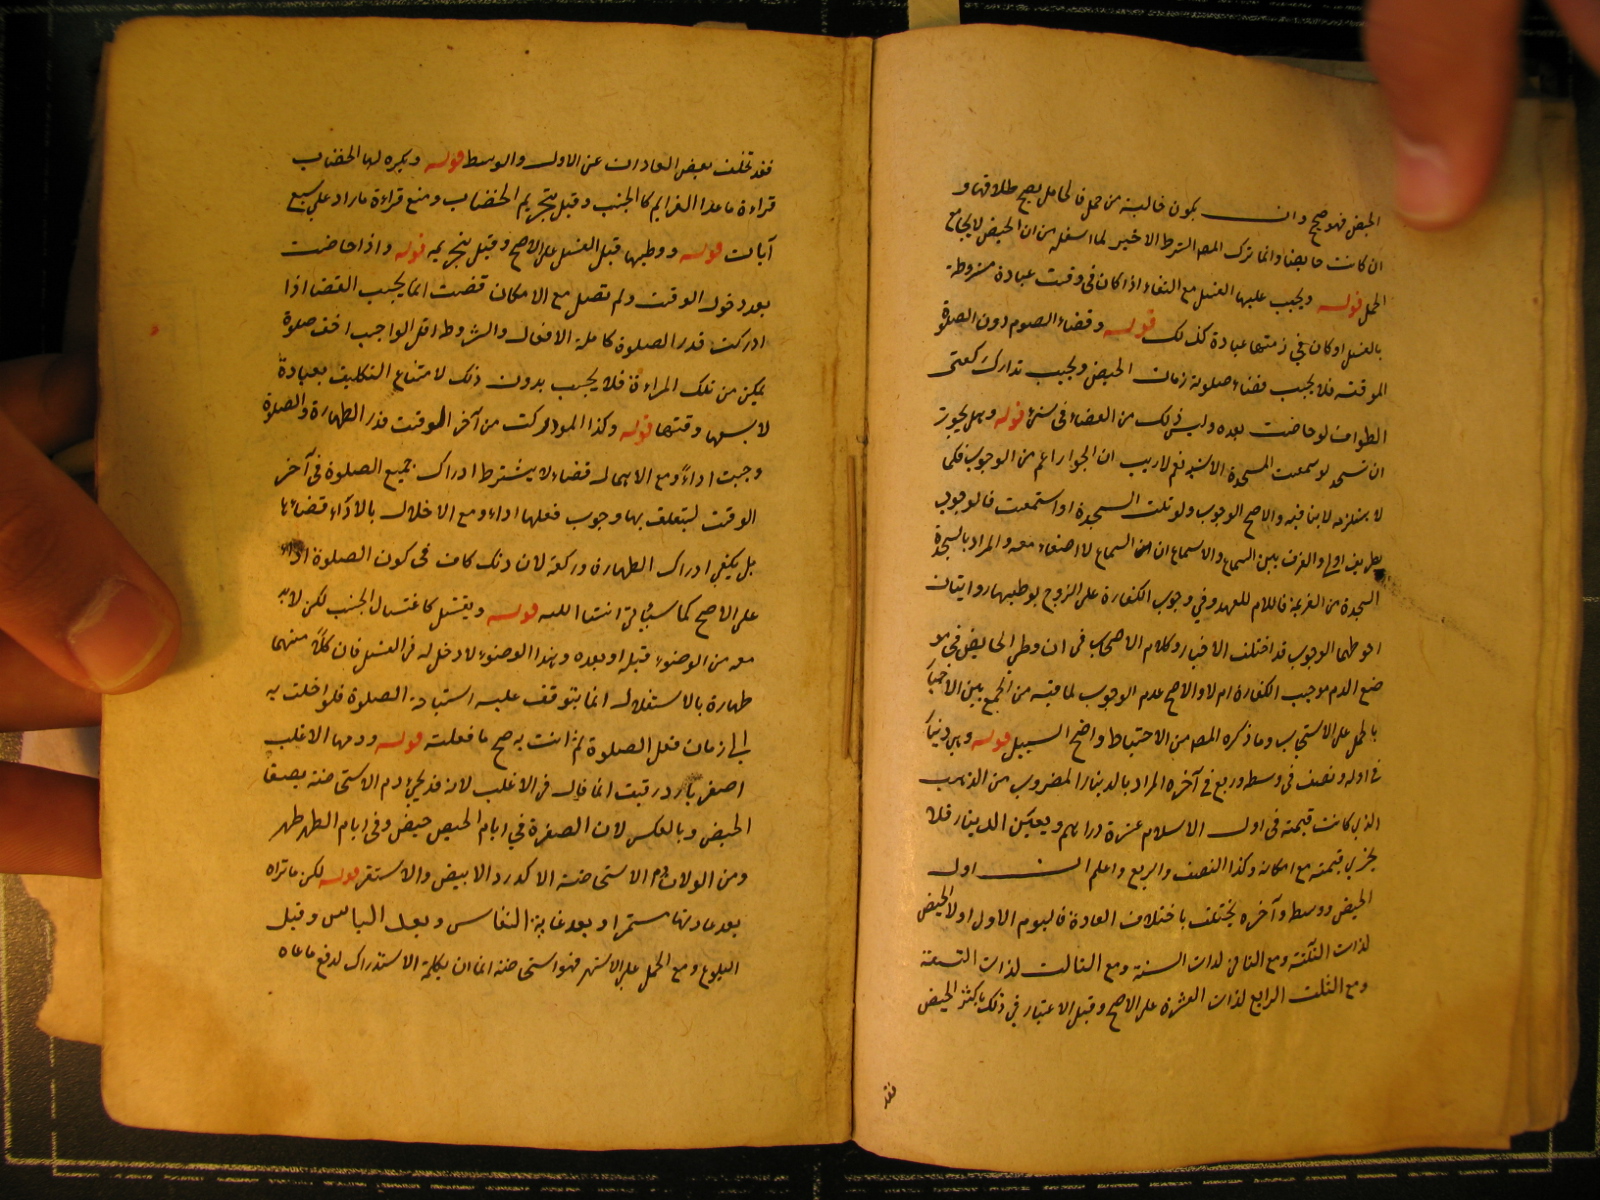 الحيض فهو صح وان يكون خالية من حمل فالحامل يصح طلاقها و
ان كانت حايضا وانما ترك المص الشرط الاخير لما اسلفه من ان الحيض لا يجامع
الحمل قوله ويجب عليها الغسل مع النقاء اذا كان في وقت عبادة مشروطة
بالغسل او كان في ذمتها عبادة كذلك قوله وقضاء الصوم دون الصلوة
الموقتة فلا يجب قضاء صلوة زمان الحيض ويجب تدارك ركعتي
الطواف لو حاضت بعده وليس ذلك من القضاء في شئ قوله وهل يجوز
ان تسجد لو سمعت السجدة الاشبه نعم لا ريب ان الجواز اعم من الوجوب فكما
لا يستلزمه لا ينافيه والاصح الوجوب ولو تلت السجدة او استمعت فالوجوب
بطريق اولى والفرق بين السماع والاستماع ان السماع لا اصغاء معه والمراد بالسجدة
السجدة من العزيمة فاللام للعهد وفي وجوب الكفارة على الزوج بوطيها روايتان
احوطهما الوجوب قد اختلف الاخبار وكلام الاصحاب في ان وطي الحايض في مو
ضع الدم موجب الكفارة ام لا والاصح عدم الوجوب لما فيه من الجمع بين الاخبار
بالحمل على الاستحباب وما ذكره المص من الاحتياط واضح السبيل قوله وهي دينار
في اوله ونصف في وسطه وربع في آخره المراد بالدينار المضروب من الذهب
الذي كانت قيمته في اول الاسلام عشرة دراهم ويعتبر الدينار فلا
يجزي قيمته مع امكانه وكذا النصف والربع واعلم ان اول
الحيض ووسطه وآخره يختلف باختلاف العادة فاليوم الاول اول الحيض
لذات الثلثة ومع الثاني لذات الستة ومع الثالث لذات التسعة
ومع الثلث الرابع لذات العشرة على الاصح وقيل الاعتبار في ذلك باكثر الحيض
فقد
فقد تخلت بعض العادات عن الاول والوسط قوله ويكره لها الخضاب
قراءة ما عدا العزايم كالجنب وقيل بتحريم الخضاب ومنع قراءة ما زاد على سبع
آيات قوله ووطيها قبل الغسل على الاصح وقيل بتحريمه قوله واذا حاضت
بعد دخول الوقت ولم تصل مع الامكان قضت انما يجب القضا اذا
ادركت قدر الصلوة كاملة الافعال والشروط اقل الواجب اخف صلوة
يمكن من تلك المراءة فلا يجب بدون ذلك لامتناع التكليف بعبادة
لا يسعها وقتها قوله وكذا لو ادركت من آخر الوقت قدر الطهارة والصلوة
وجبت اداءً ومع الاهمال قضاء لا يشترط ادراك جميع الصلوة في آخر
الوقت ليتعلق بها وجوب فعلها اداء ومع الاخلال بالاداء قضاءها
بل يكفي ادراك الطهارة وركعة لان ذلك كاف في كون الصلوة اداء
على الاصح كما سيأتي انشا الله قوله ويغتسل كاغتسال الجنب لكن لابد
معه من الوضوء قبله او بعده وهذا الوضوء لا دخل له في الغسل فان كلاً منهما
طهارة بالاستقلال انما يتوقف عليه استباحة الصلوة فلو اخلت به
الى زمان فعل الصلوة ثم اتت به صح ما فعلته قوله ودمها الاغلب
اصفر بارد رقيق انما قال في الاغلب لانه قد يجئ دم الاستحاضة بصفة
الحيض وبالعكس لان الصفرة في ايام الحيض حيض وفي ايام الطهر طهر
ومن الوان دم الاستحاضة الاكدر والابيض والاشقر قوله لكن ما تراه
بعد عادتها مستمرا وبعد غاية النفاس وبعد الياس وقبل
البلوغ ومع الحمل على الاشهر فهو استحاضة انما اتى بكلمة الاستدراك لدفع ما عاه